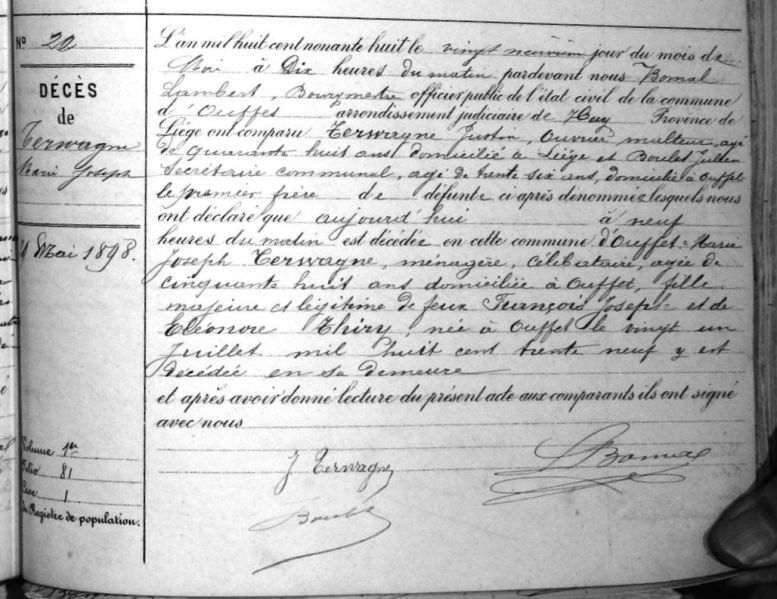 N° 20
DÉCÈS
de
Terwagne
Marie Joseph
Mai 1898.
Volume 1er
Folio 81
Case 1
du Registre de population.
L'an mil huit cent nonante huit le vingt neuvième jour du mois de
Mai à Dix heures du matin pardevant nous Bomal
Lambert, Bourgmestre officier public de l'état civil de la commune
d'Ouffet arrondissement judiciaire de Huy Province de
Liége ont comparu Terwagne Justin, Ouvrier malteur, agé
de quarante huit ans domicilié à Liège et Boulet Julien
Secrétaire communal, agé de trente six ans, domicilié à Ouffet
le premier frère de défunte ci après dénommée lesquels nous
ont déclaré que aujourd'hui à neuf
heures du matin est décédée en cette commune d'Ouffet Marie
Joseph Terwagne, ménagère, célibataire, agée de
cinquante huit ans domiciliée à Ouffet, fille
majeure et légitime de feux François Joseph et de
Eléonore Thiry, née à Ouffet le vingt un
Juillet mil huit cent trente neuf y est
décédée en sa demeure
et après avoir donné lecture du présent acte aux comparants ils ont signé
avec nous
J Terwagne
LBomal
Boulet